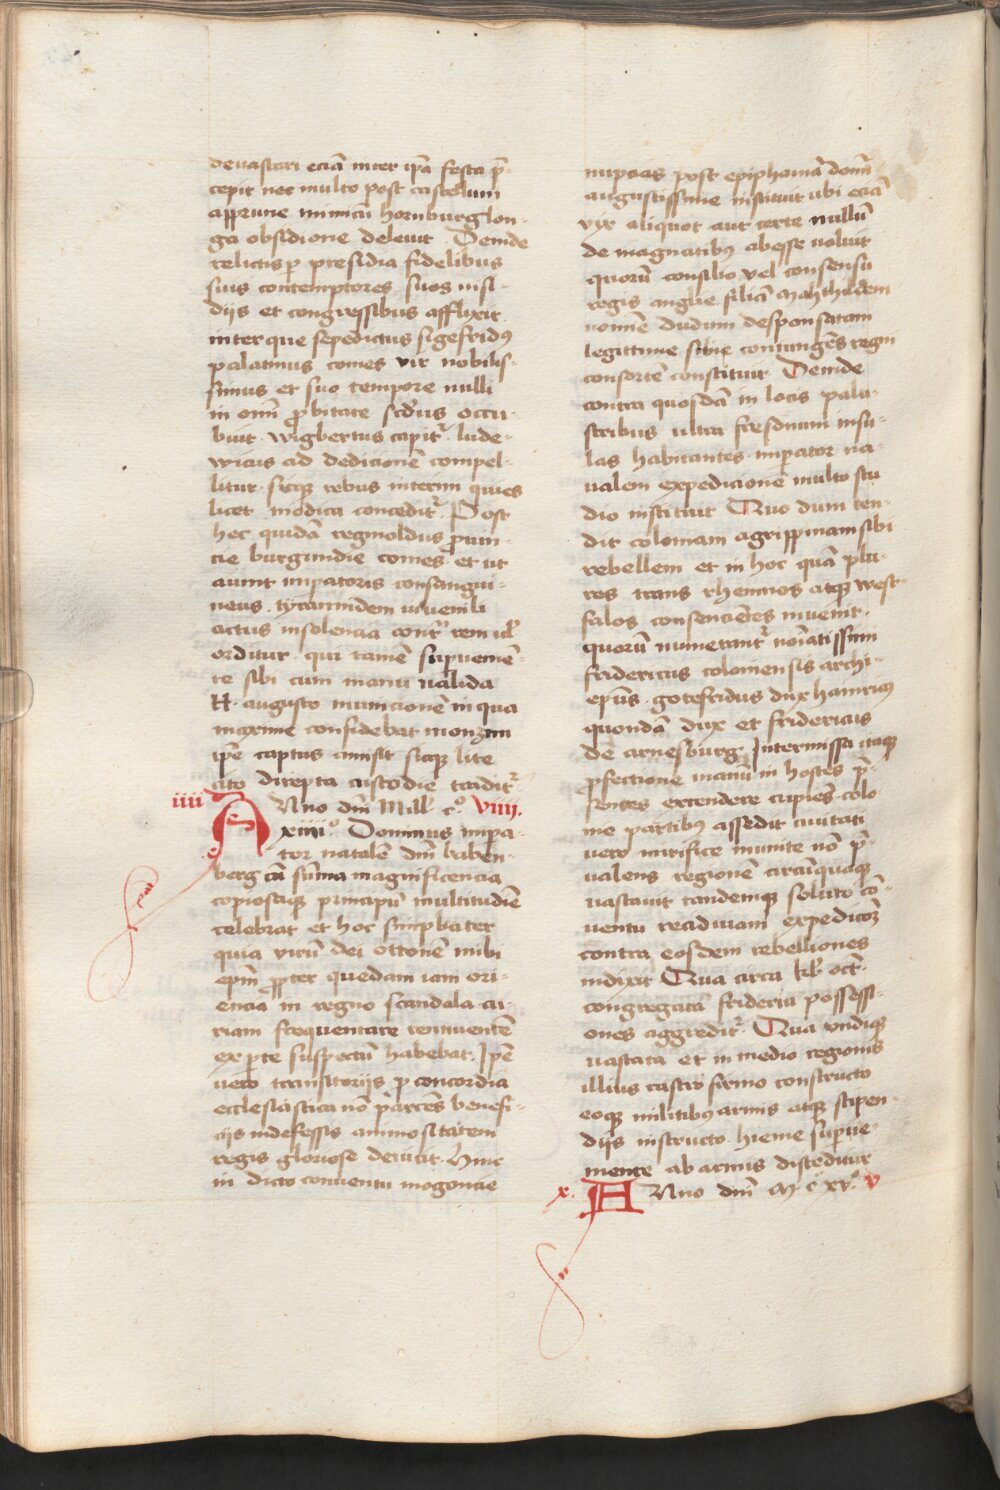 deuastari eciā inter ip̄a festa p̄-
cepit nec multo post castellum
apprime inimicū hornburg lon-
ga obsidione deleuit Deinde
relictis p presidia fidelibus
suis contemptores suos insi-
dijs et congressibus afflixit
interque sepedictus sigefridꝰ
palatinus comes vir nobilis-
simus et suo tempore nulli
in om̄i ꝓbitate scd̄us occu-
buit wigbertus capit᷑ lude-
wicus ad dedicionē compel-
litur sicqꝫ rebus interim quies
licet modica concedit᷑ Post
hec quidā reginoldus ꝓuin-
cie burgundie comes et ut
aiunt imꝑatoris consangui-
neus tyrannidem iuuenili
actus insolencia contᷓ rem
orditur qui tamē supuemē-
te sibi cum manu valida
H augusto municionē in qua
maxime confidebat monzun
ip̄e captus amisit sicqꝫ lite
cito direpta custodie tradit᷑
iiii Anno dn̄i Mill̄ cº viiii
xiiiiº Dominus impa-
tor natalē dn̄i baben-
berg cū sūma magnificencia
copiosaqꝫ principū multitudīe
celebrat et hoc simpliciter
quia virū dei ottonē inibi
ep̄m ꝓpter quedam iam ori-
encia in regno scandala cu-
riam frequentare rennuentē
ex ꝑte suspectū habebat Ip̄e
vero transitorijs ꝓ concordia
ecclesiastica nō ꝑcēs benefi-
cijs indefessis animositatem
regis gloriose deuicit Hinc
in dicto conuentu mogoncie
nupcias post epiphaniā domī
augustissime instituit ubi eciā
vix aliquot aut certe nullū
de magnatibꝰ abesse uoluit
quorū consilio vel consensu
regis anglie filiā Mahthildem
nomē dudum desponsatam
legittime sibi coniungēs regni
consortē constituit Deinde
contra quosdā in locis palu-
stribus ultra fresonum insu-
las habitantes imperator na-
ualem expedicionē multo stu
dio instituit Quo dum ten-
dit coloniam agrippinam sibi
rebellem et in hoc quā plu-
res trans rhennos atqꝫ west-
falos consencientes inuenit
quorū numerant᷑ noīatissimi
fridericus coloniensis archi-
ep̄us gotefridus dux hainricꝰ
quondā dux et fridericus
de arnesburg Intermissa itaqꝫ
ꝓfectione manū in hostes p̄-
sentes extendere cupiēs colo
nie partibꝰ assedit ciuitati
vero mirifice munite nō p̄-
ualens regionē circūquaqꝫ
vastauit tandemqꝫ soluto cō-
uentu recidiuam expedicōꝫ
contra eosdem rebelliones
indixit Qua circa kl̄ oct̄
congregata friderici possessi-
ones aggredit᷑ Qua vndiqꝫ
vastata et in medio regionis
illius castro firmo constructo
eoqꝫ militibꝰ armis atqꝫ stipen-
dijs instructo hieme supue-
niente ab armis disceditur
x Anno dn̄i M cº xvº v